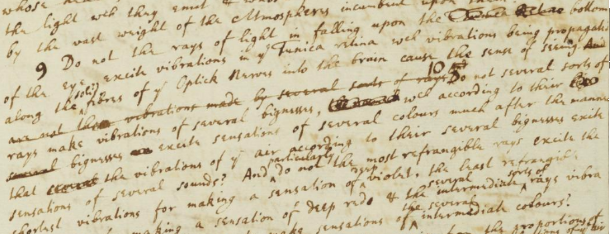 the light web they emit
by the vast weight of the Atmospheres incumbent upon
9 Do not the rays of light in falling upon the bottom
of the eye excite vibrations in yͤ Tunica retina wch vibrations being propagated
along the solid fibres of yͤ Optick Nerves into the brain cause the sense of seeing. And
are not the vibrations made by several sorts of rays 10 Do not several sorts of
rays make vibrations of several bignesses, wch according to their
several bignesses excite sensations of several colours much after the manner
that the vibrations of yͤ air according to their several bignesses excite
sensations of several sounds? And particularly do not the most refrangible rays excite the
shortest vibrations for making a sensation of deep violet, the least refrangible
making a sensation of deep red & the several intermediate sorts of rays vibra
make sensations of the several intermediate colours?
the proportions of